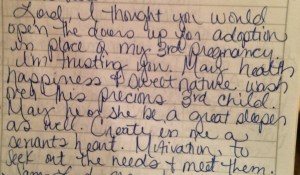 Lord, I thought you would
open the doors up for adoption
in place of my 3rd pregnancy.
I'm trusting you. May health
happiness & sweet nature wash
over this precious 3rd child.
May he or she be a great sleeper
as well. Create in me a
servants heart. Motivation, to
seek out the needs & meet them.